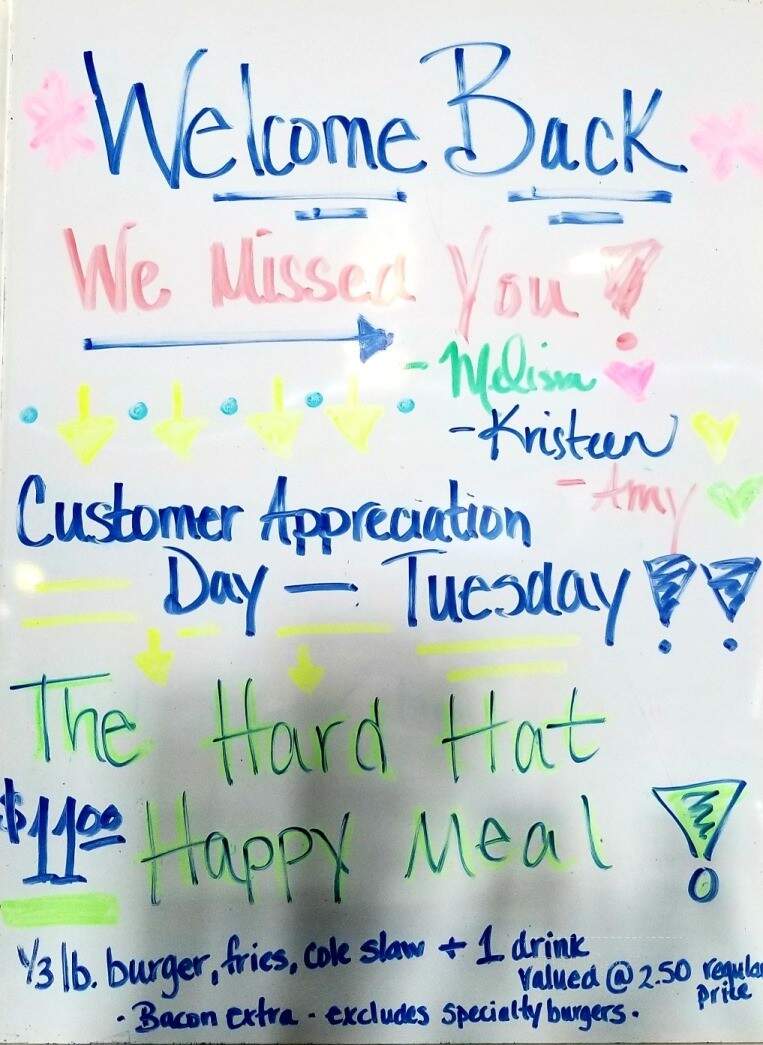 Welcome Back
We Missed You!
- Melissa
- Kristeen
- Amy
Customer Appreciation
Day — Tuesday!!
The Hard Hat
$11.00 Happy Meal!
1/3 lb. burger, fries, cole slaw + 1 drink
valued @ 2.50 regular
price
· Bacon extra - excludes specialty burgers ·